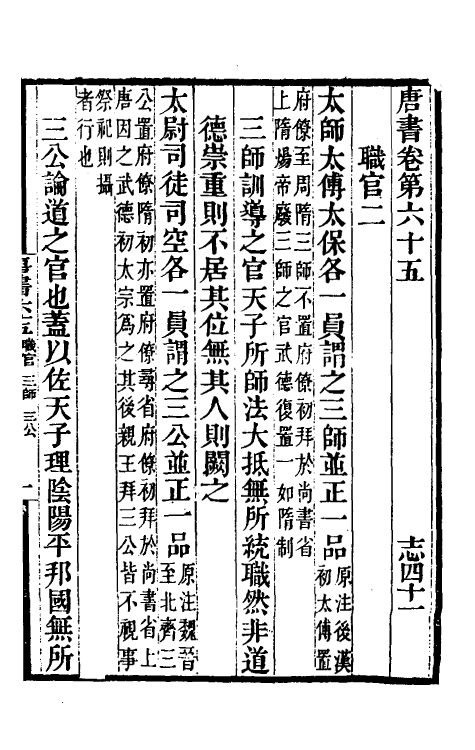 唐書卷第六十五　志四十一
職官二
太師太傅太保各一員謂之三師並正一品原注後漢
初太傅置
府僚至周隋三師不置府僚初拜於尚書省
上隋煬帝廢三師之官武德復置一如隋制
三師訓導之官天子所師法大抵無所統職然非道
德崇重則不居其位無其人則闕之
太尉司徒司空各一員謂之三公並正一品原注魏晉
至北齊三
公置府僚隋初亦置府僚尋省府僚初拜於尚書省上
唐因之武德初太宗為之其後親王拜三公皆不視事
祭祀則攝
者行也
三公論道之官也蓋以佐天子理陰陽平邦國無所
職官　三師　三公　一